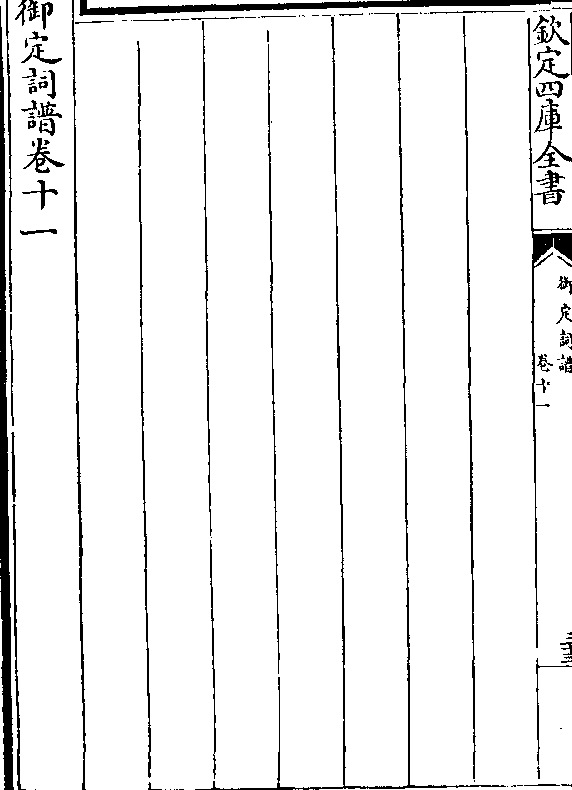 欽定四庫全書
御定詞譜
卷十一
御定詞譜卷十一